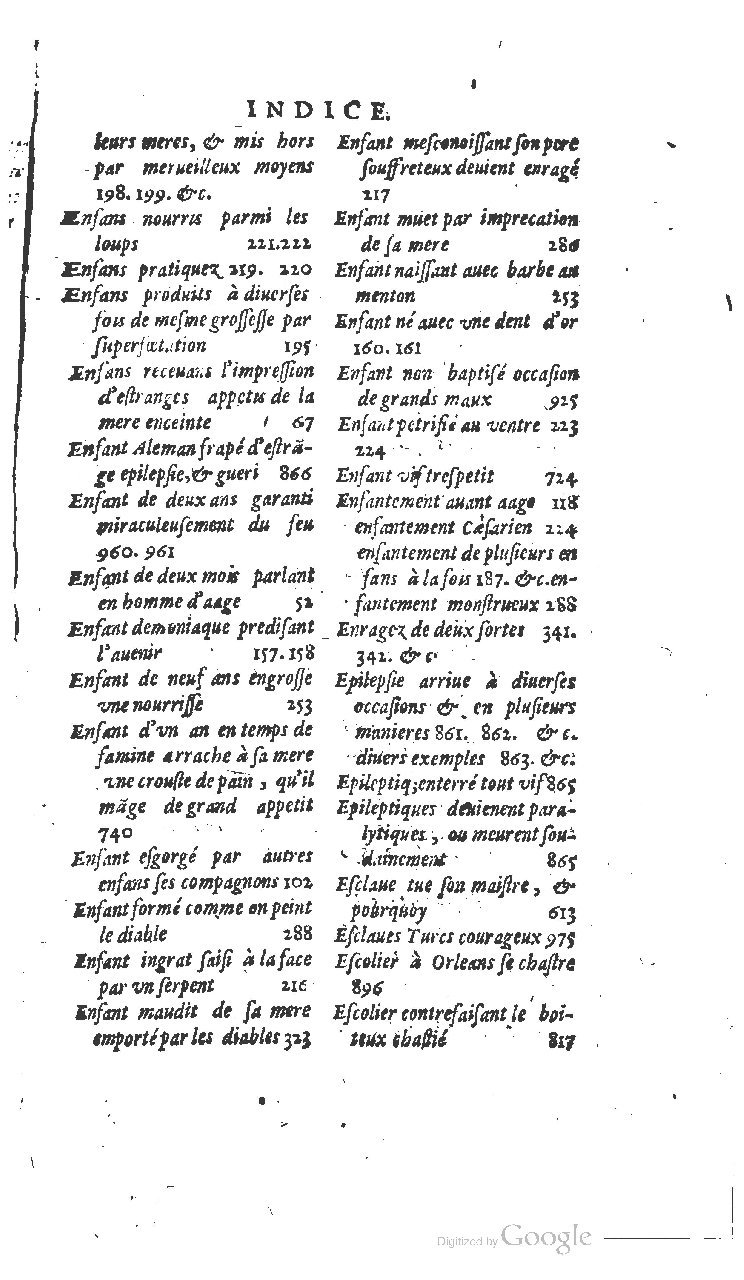 INDICE.
leurs meres, & mis hors
par merueilleux moyens
198. 199. &c.
Enfans nourris parmi les
loups 221.222
Enfans pratiquez 219. 220
Enfans produits à diuerses
fois de mesme grossesse par
superfœtation 195
Enfans receuans l'impression
d'estranges appetis de la
mere enceinte 67
Enfant Aleman frapé d'estrã-
ge epilepsie, & gueri 866
Enfant de deux ans garanti
miraculeusement du feu
960. 961
Enfant de deux mois parlant
en homme d'aage 52
Enfant demoniaque predisant
l'auenir 157.158
Enfant de neuf ans engrosse
vne nourrisse 253
Enfant d'vn an en temps de
famine arrache à sa mere
vne crouste de pain, qu'il
mãge de grand appetit
740
Enfant esgorgé par autres
enfans ses compagnons 102
Enfant formé comme on peint
le diable 288
Enfant ingrat saisi à la face
par vn serpent 216
Enfant maudit de sa mere
emporté par les diables 323
Enfant mesconoissant son pere
souffreteux deuient enragé
217
Enfant muet par imprecation
de sa mere 286
Enfant naissant auec barbe au
menton 253
Enfant né auec vne dent d'or
160. 161
Enfant non baptisé occasion
de grands maux 925
Enfant petrifié au ventre 223
224
Enfant vif trespetit 724
Enfantement auant aage 118
enfantement Cæsarien 224
enfantement de plusieurs en
fans à la fois 187. &c. en-
fantement monstrueux 288
Enragez de deux sortes 341.
342. & c
Epilepsie arriue à diuerses
occasions & en plusieurs
manieres 861. 862. &c.
diuers exemples 863. &c.
Epileptiq; enterré tout vif 865
Epileptiques deuienent para-
lytiques, ou meurent sou-
dainement 865
Esclaue tue son maistre, &
pourquoy 613
Esclaues Turcs courageux 975
Escolier à Orleans se chastre
896
Escolier contrefaisant le boi-
teux chastié 817
Digitized by Google